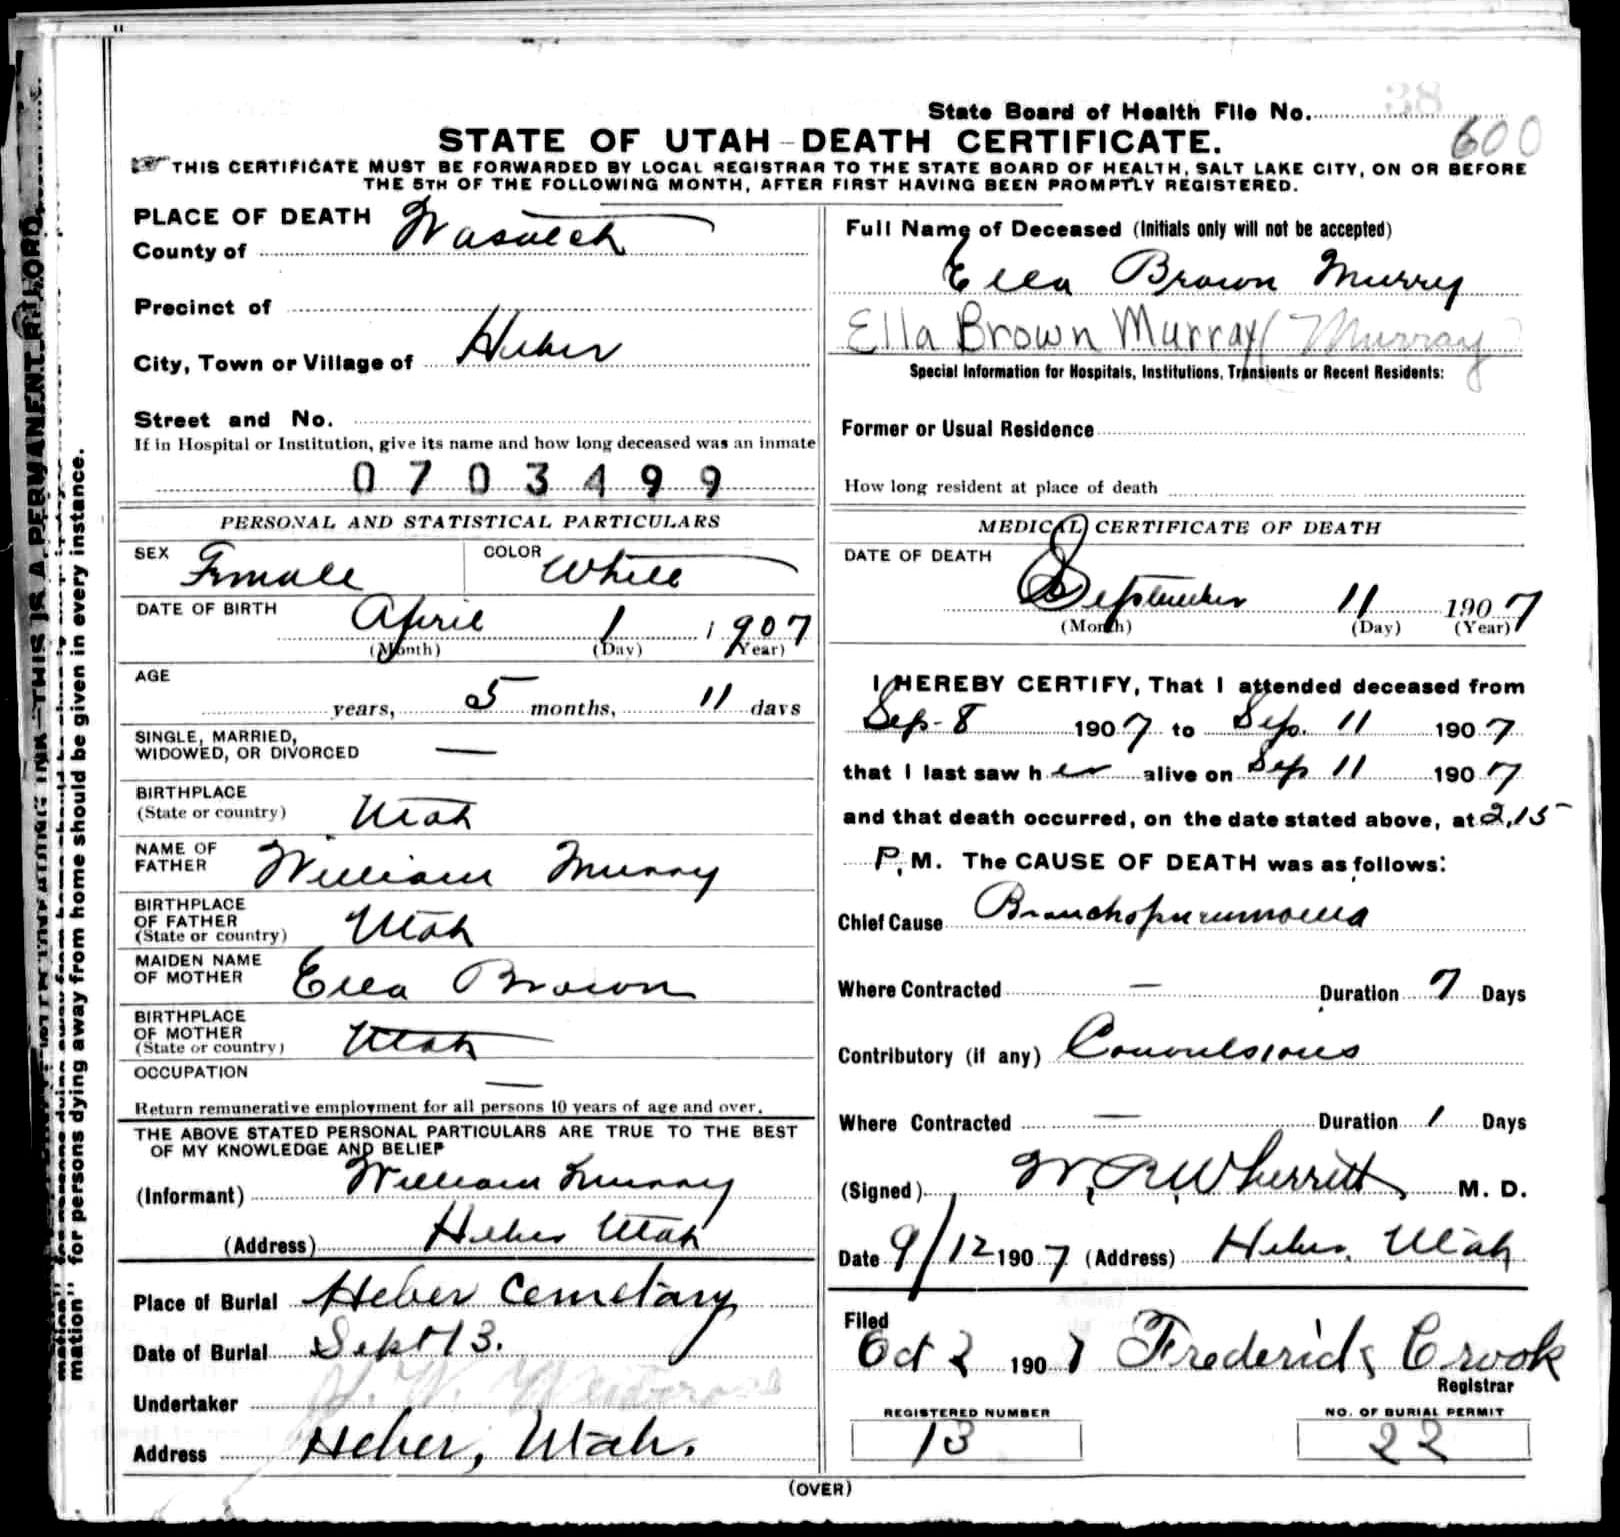 State Board of Health File No. 38
600
STATE OF UTAH - DEATH CERTIFICATE.
THIS CERTIFICATE MUST BE FORWARDED BY LOCAL REGISTRAR TO THE STATE BOARD OF HEALTH, SALT LAKE CITY, ON OR BEFORE
THE 5TH OF THE FOLLOWING MONTH, AFTER FIRST HAVING BEEN PROMPTLY REGISTERED.
PLACE OF DEATH
County of Wasatch
Precinct of
City, Town or Village of Heber
Street and No.
If in Hospital or Institution, give its name and how long deceased was an inmate
0703499
PERSONAL AND STATISTICAL PARTICULARS
SEX Female COLOR White
DATE OF BIRTH April 1 1907
(Month) (Day) (Year)
AGE
years, 5 months, 11 days
SINGLE, MARRIED,
WIDOWED, OR DIVORCED —
BIRTHPLACE
(State or country) Utah
NAME OF
FATHER William Murry
BIRTHPLACE
OF FATHER
(State or country) Utah
MAIDEN NAME
OF MOTHER Ella Brown
BIRTHPLACE
OF MOTHER
(State or country) Utah
OCCUPATION —
Return remunerative employment for all persons 10 years of age and over.
THE ABOVE STATED PERSONAL PARTICULARS ARE TRUE TO THE BEST
OF MY KNOWLEDGE AND BELIEF
(Informant) William Murray
(Address) Heber Utah
Place of Burial Heber Cemetary
Date of Burial Sept 13.
Undertaker
Address Heber, Utah.
Full Name of Deceased (Initials only will not be accepted)
Ella Brown Murry
Ella Brown Murray (Murray)
Special Information for Hospitals, Institutions, Transients or Recent Residents:
Former or Usual Residence
How long resident at place of death
MEDICAL CERTIFICATE OF DEATH
DATE OF DEATH
September 11 1907
(Month) (Day) (Year)
I HEREBY CERTIFY, That I attended deceased from
Sep. 8 1907 to Sep. 11 1907
that I last saw her alive on Sep 11 1907
and that death occurred, on the date stated above, at 2.15
P.M. The CAUSE OF DEATH was as follows:
Chief Cause Bronchopneumonia
Where Contracted — Duration 7 Days
Contributory (if any) Convulsions
Where Contracted — Duration 1 Days
(Signed) W. R. Wherritt M. D.
Date 9/12 1907 (Address) Heber, Utah
Filed
Oct 2 1907 Frederick Crook
Registrar
REGISTERED NUMBER
13
NO. OF BURIAL PERMIT
22
(OVER)
THIS IS A PERMANENT RECORD.
mation" for persons dying away from home should be given in every instance.